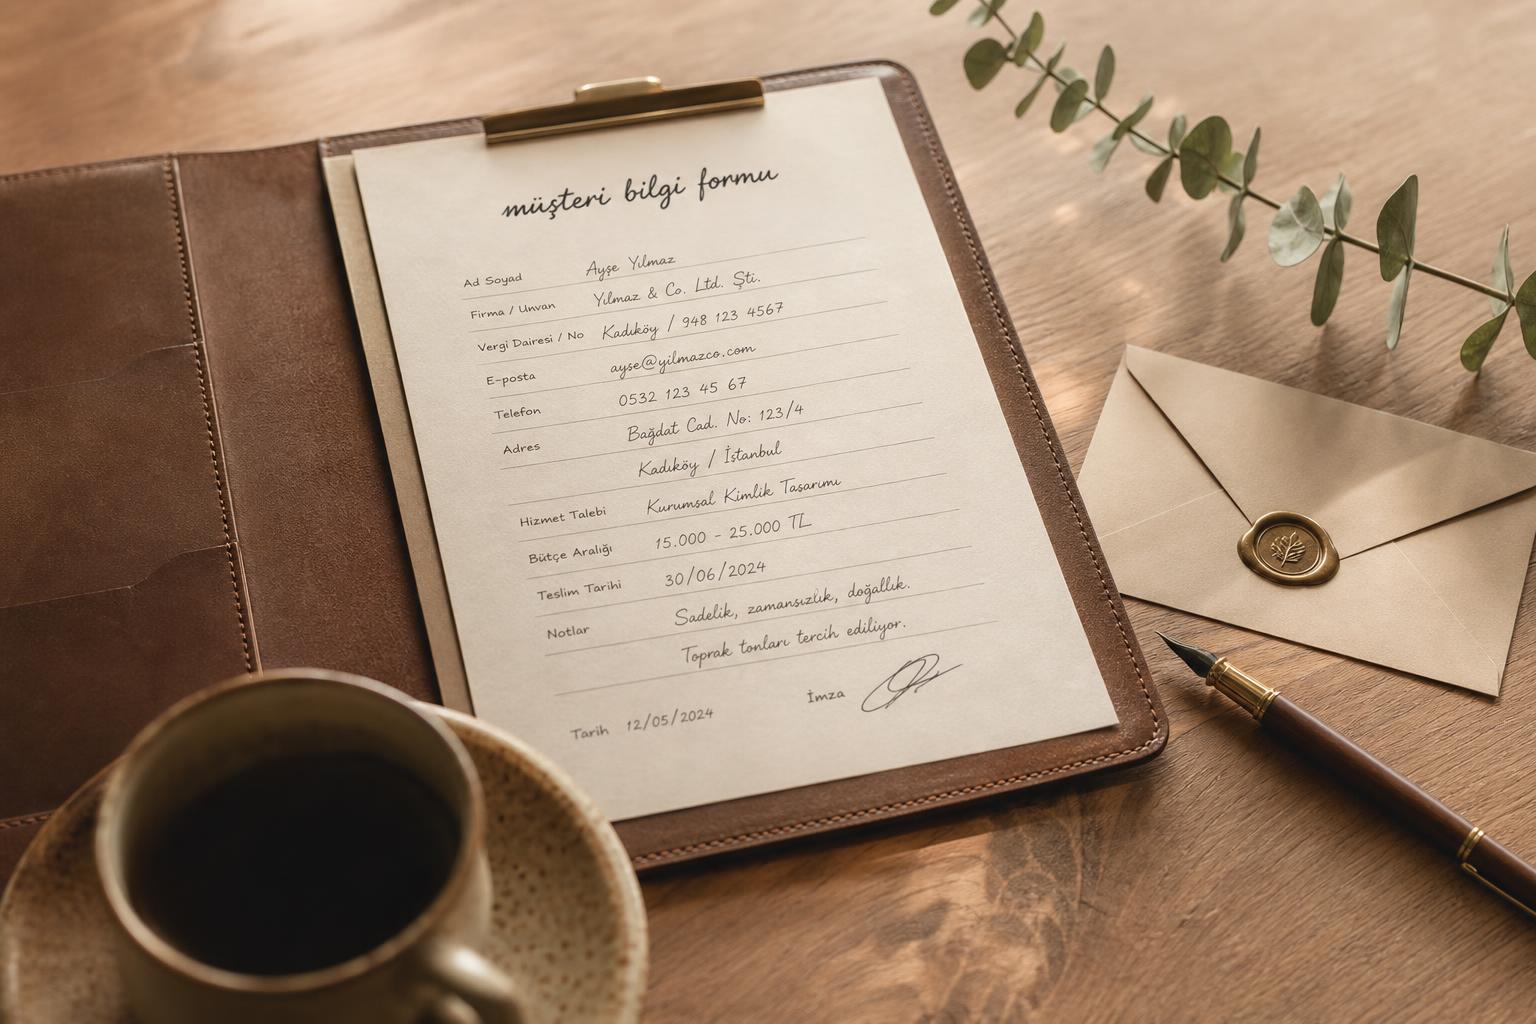 müşteri bilgi formu
Ad Soyad Ayşe Yılmaz
Firma / Unvan Yılmaz & Co. Ltd. Şti.
Vergi Dairesi / No Kadıköy / 948 123 4567
E-posta ayse@yilmazco.com
Telefon 0532 123 45 67
Adres Bağdat Cad. No: 123/4
Kadıköy / İstanbul
Hizmet Talebi Kurumsal Kimlik Tasarımı
Bütçe Aralığı 15.000 - 25.000 TL
Teslim Tarihi 30/06/2024
Notlar Sadelik, zamansızlık, doğallık.
Toprak tonları tercih ediliyor.
Tarih 12/05/2024 İmza